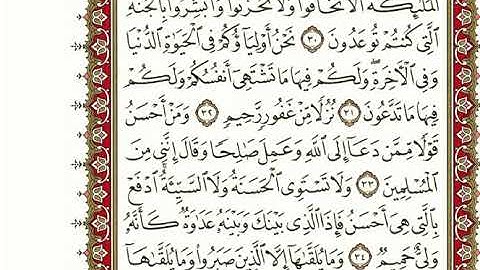 ٱلْمَلَٰٓئِكَةُ أَلَّا تَخَافُوا۟ وَلَا تَحْزَنُوا۟ وَأَبْشِرُوا۟ بِٱلْجَنَّةِ
ٱلَّتِى كُنتُمْ تُوعَدُونَ ٣٠ نَحْنُ أَوْلِيَآؤُكُمْ فِى ٱلْحَيَوٰةِ ٱلدُّنْيَا
وَفِى ٱلْءَاخِرَةِ ۖ وَلَكُمْ فِيهَا مَا تَشْتَهِىٓ أَنفُسُكُمْ وَلَكُمْ
فِيهَا مَا تَدَّعُونَ ٣١ نُزُلًا مِّنْ غَفُورٍ رَّحِيمٍ ٣٢ وَمَنْ أَحْسَنُ
قَوْلًا مِّمَّن دَعَآ إِلَى ٱللَّهِ وَعَمِلَ صَٰلِحًا وَقَالَ إِنَّنِى مِنَ
ٱلْمُسْلِمِينَ ٣٣ وَلَا تَسْتَوِى ٱلْحَسَنَةُ وَلَا ٱلسَّيِّئَةُ ۚ ٱدْفَعْ
بِٱلَّتِى هِىَ أَحْسَنُ فَإِذَا ٱلَّذِى بَيْنَكَ وَبَيْنَهُۥ عَدَٰوَةٌ كَأَنَّهُۥ
وَلِىٌّ حَمِيمٌ ٣٤ وَمَا يُلَقَّىٰهَآ إِلَّا ٱلَّذِينَ صَبَرُوا۟ وَمَا يُلَقَّىٰهَآ